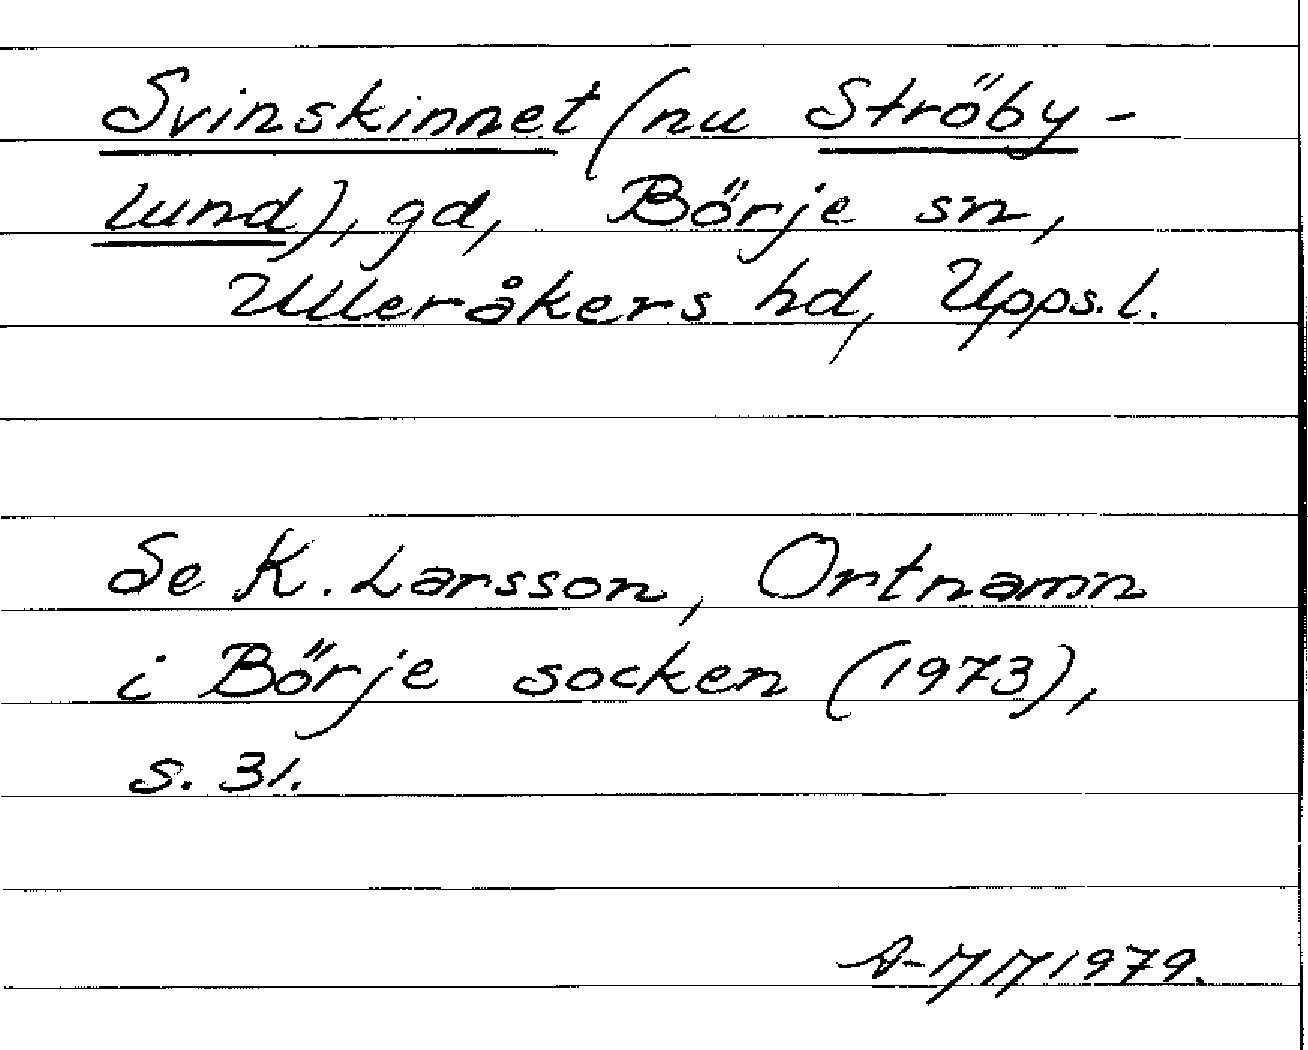 Svinskinnet (nu Ströby-
lund), gd, Börje sn,
Ulleråkers hd, Upps. l.
Se K. Larsson, Ortnamn
i Börje socken (1973),
s. 31.
1979.